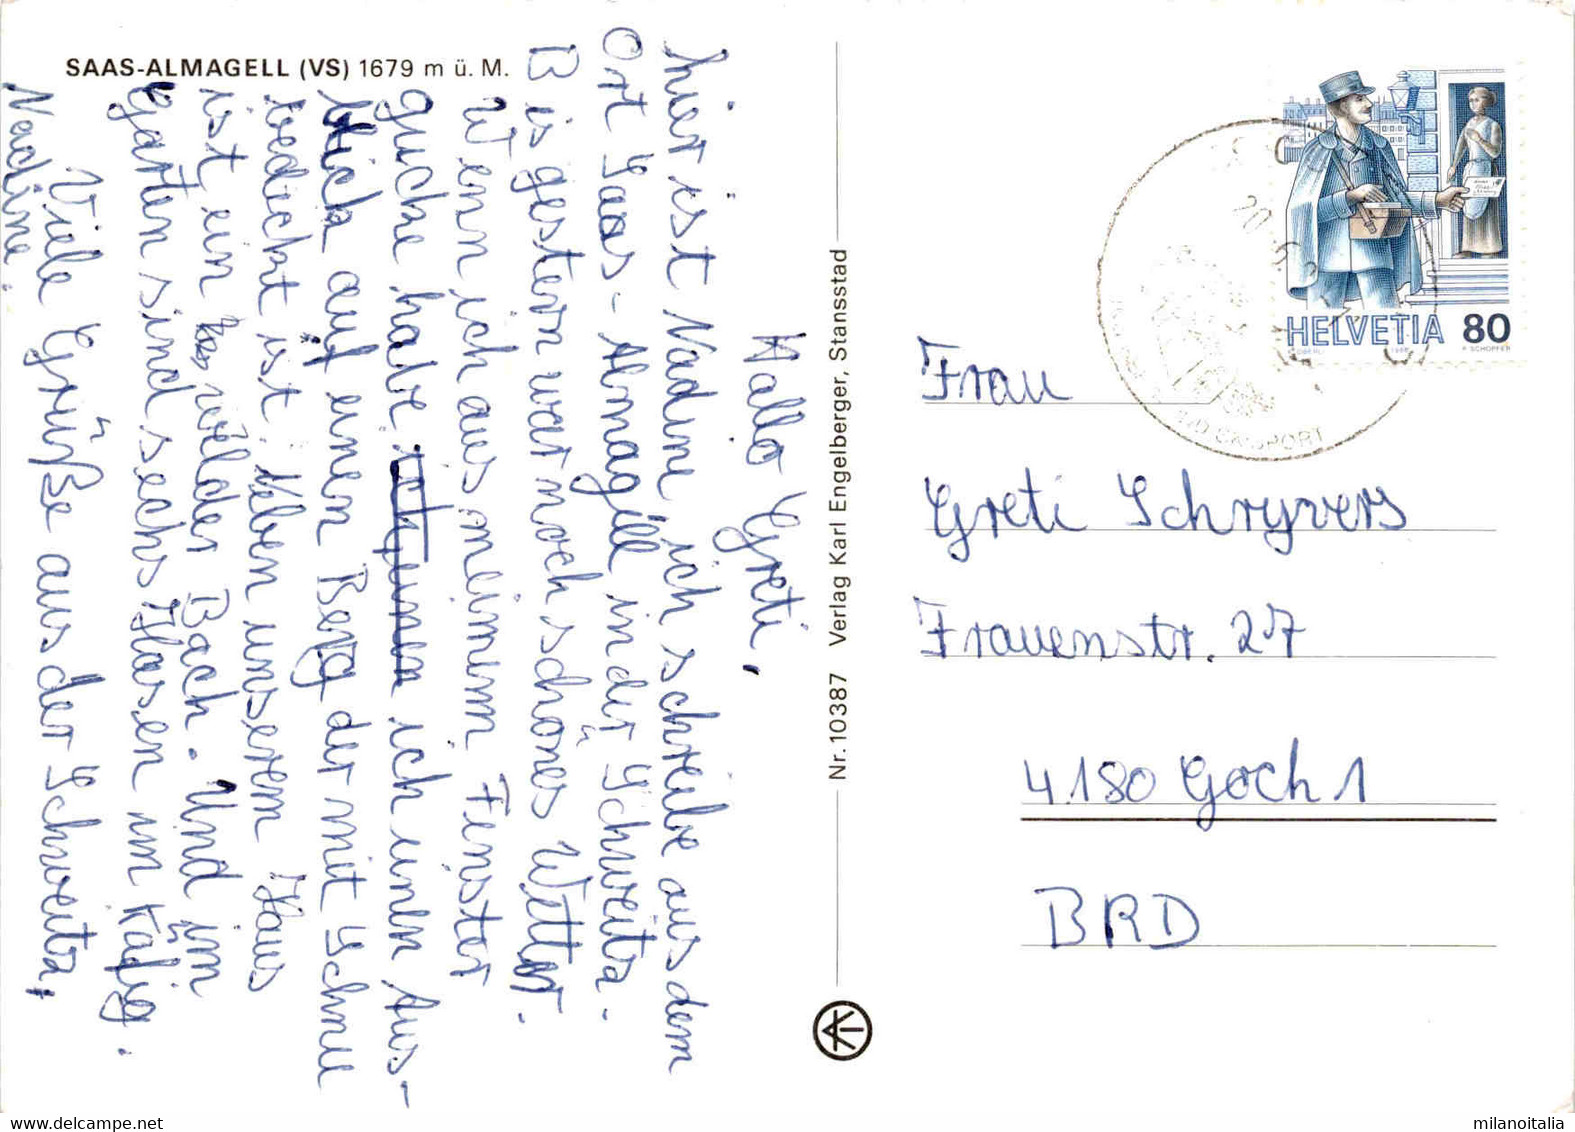 SAAS-ALMAGELL (VS) 1679 m ü. M.
Hallo Greti,
hier ist Nadine ich schreibe aus dem
Ort Saas-Almagell in der Schweitz.
Bis gestern war noch schönes Wetter.
Wen ich aus meimem Fenster
gucke habe ich einen Aus-
blick auf einen Berg der mit Schnu
bedeckt ist. Neben unserem Haus
ist ein wilder Bach. Und im
Garten sind sechs Hasen im Käfig.
Viele Grüße aus der Schweitz,
Nadine
Nr. 10387 Verlag Karl Engelberger, Stansstad
HELVETIA 80
Frau
Greti Schryvers
Frauenstr. 27
4180 Goch 1
BRD
milanoitalia